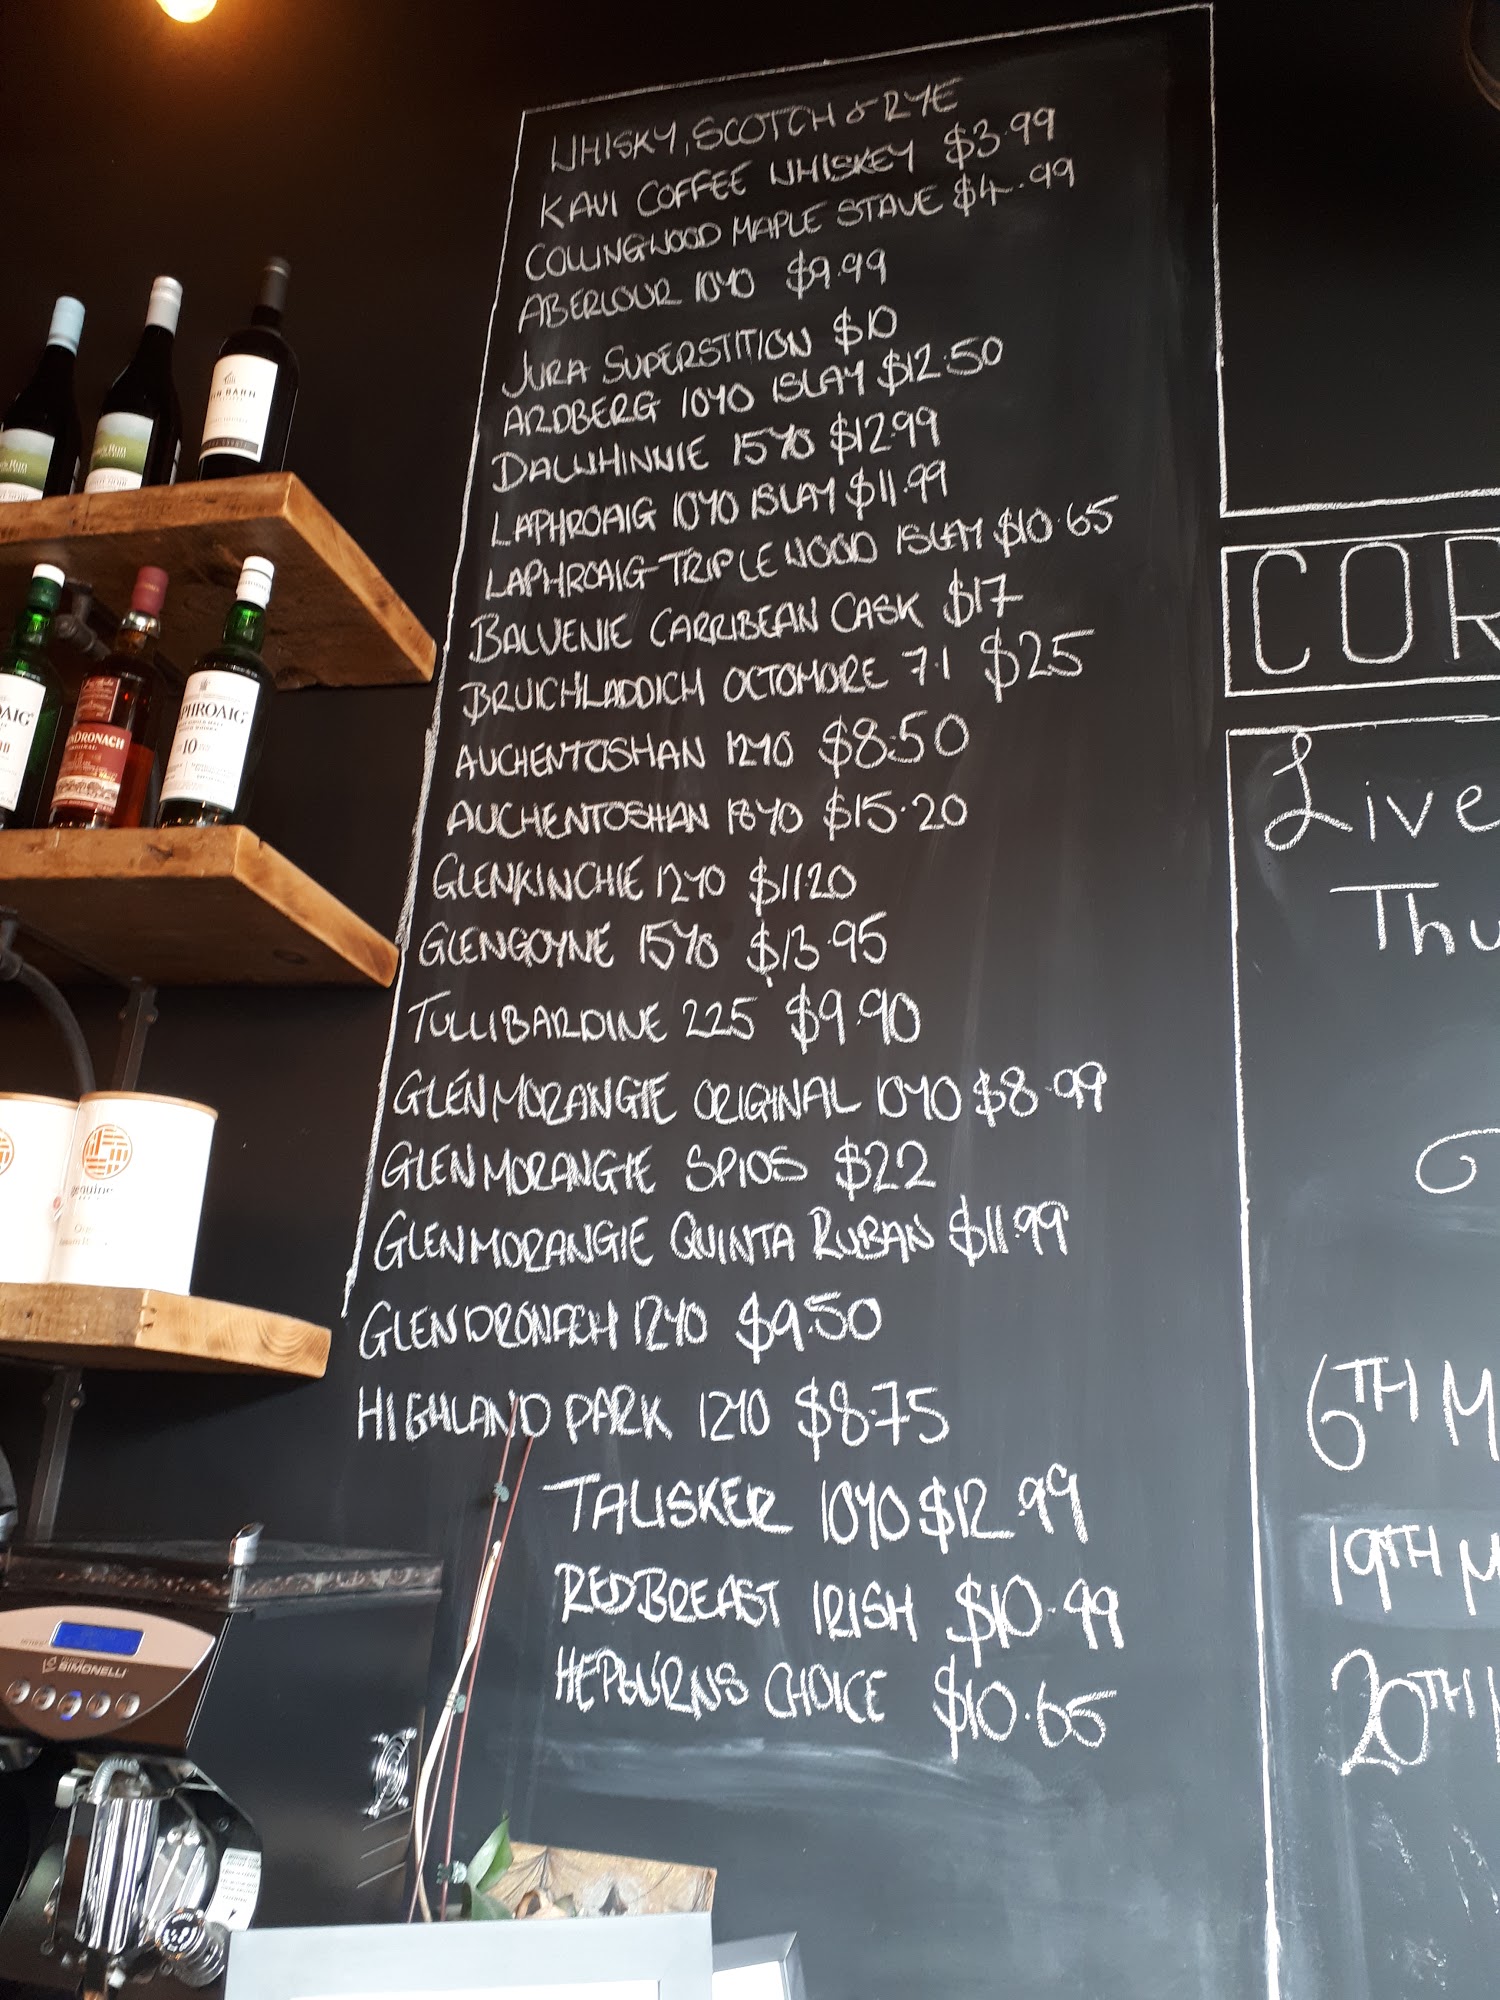 WHISKY, SCOTCH & RYE
KAVI COFFEE WHISKEY $3.99
COLLINGWOOD MAPLE STAVE $4.99
ABERLOUR 10YO $9.99
JURA SUPERSTITION $10
ARDBERG 10YO ISLAY $12.50
DALWHINNIE 15YO $12.99
LAPHROAIG 10YO ISLAY $11.99
LAPHROAIG-TRIPLE WOOD ISLAY $10.65
BALVENIE CARRIBEAN CASK $17
BRUICHLADDICH OCTOMORE 7.1 $25
AUCHENTOSHAN 12YO $8.50
AUCHENTOSHAN 18YO $15.20
GLENKINCHIE 12YO $11.20
GLENGOYNE 15YO $13.95
TULLIBARDINE 225 $9.90
GLENMORANGIE ORIGINAL 10YO $8.99
GLENMORANGIE SPIOS $22
GLENMORANGIE QUINTA RUBAN $11.99
GLENDRONACH 12YO $9.50
HIGHLAND PARK 12YO $8.75
TALISKER 10YO $12.99
REDBREAST IRISH $10.99
HEPBURNS CHOICE $10.65
COR
Live
Thu
6TH M
19TH M
20TH
BARN
Run
Run
OAIG
DRONACH
PHROAIG
10
genuine
SIMONELLI